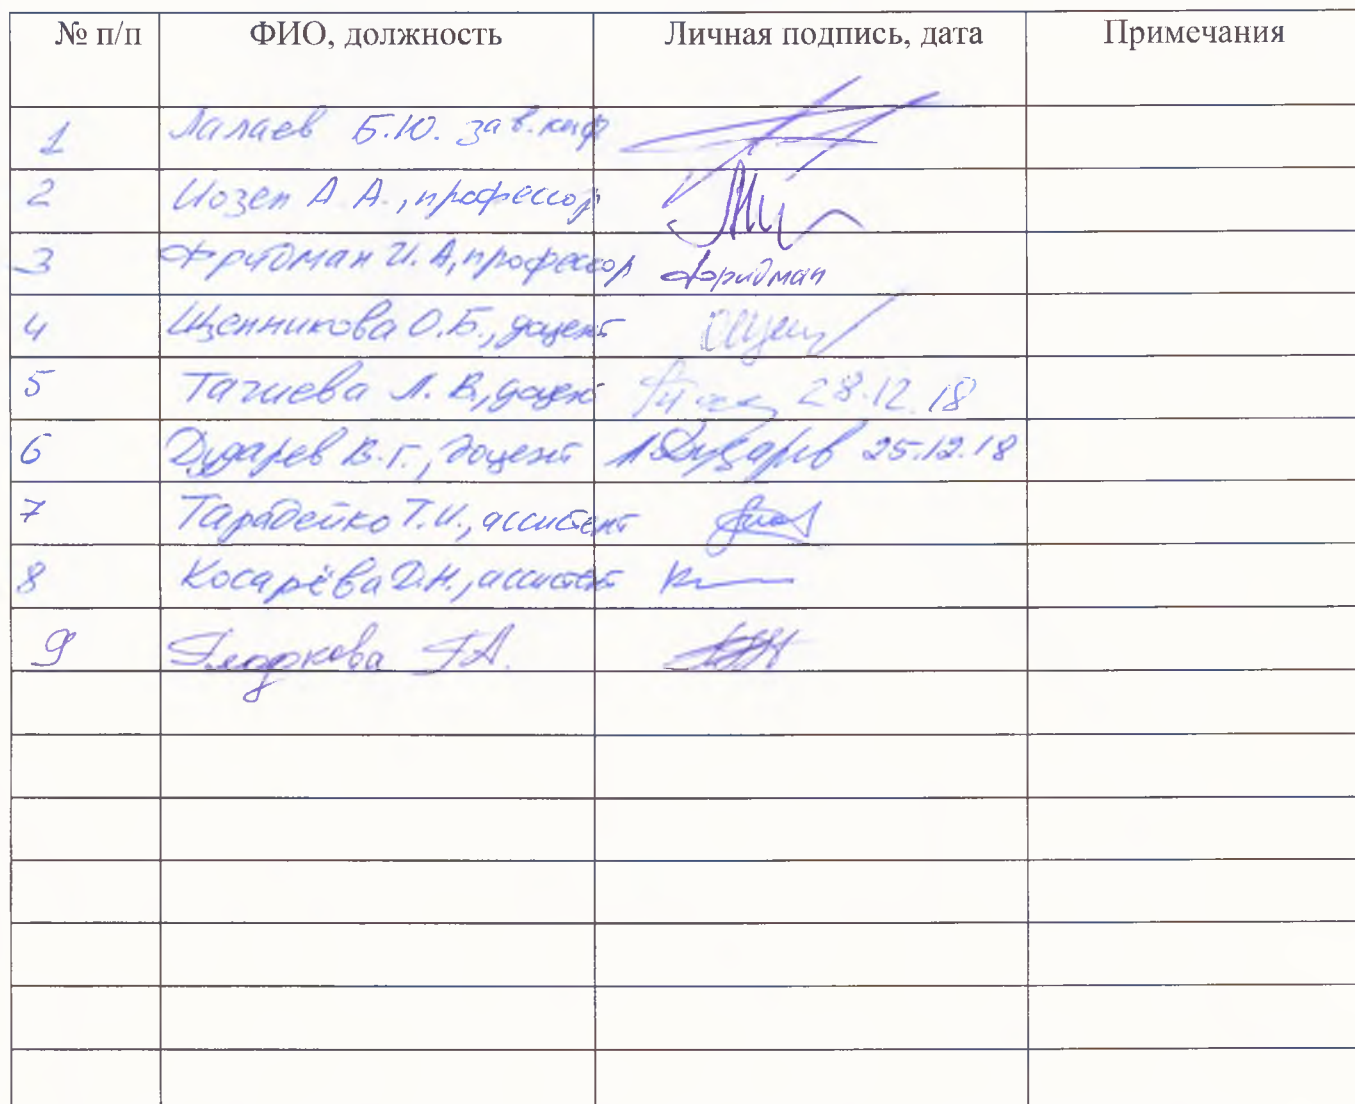 № п/п ФИО, должность Личная подпись, дата Примечания
1 Лалаев Б.Ю. зав. каф
2 Иозеп А.А., профессор
3 Фридман И.А, профессор Фридман
4 Щепникова О.Б., доцент
5 Тагиева Л.В, доцент 28.12.18
6 Дударев В.Г., доцент Дударев 25.12.18
7 Тарадейко Т.И., ассистент
8 Косарёва Д.Н., ассистент
9 Гладкова Г.А.